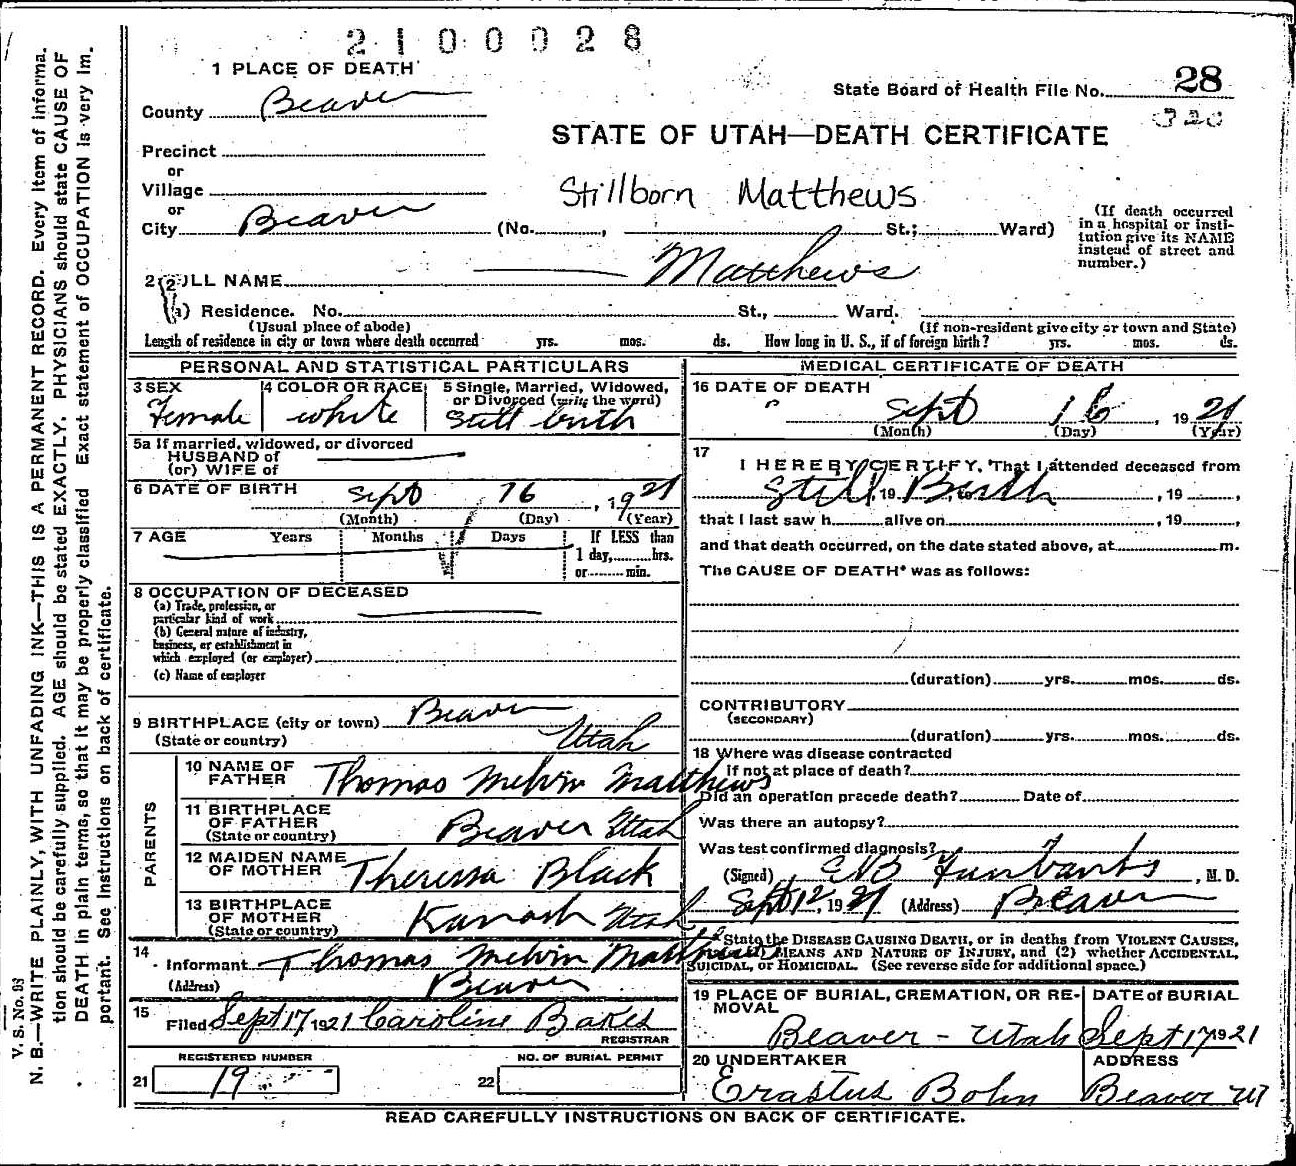 2100028
1 PLACE OF DEATH
State Board of Health File No. 28
320
County Beaver
STATE OF UTAH—DEATH CERTIFICATE
Precinct
or
Village
Stillborn Matthews
or
City Beaver (No. , St.; Ward)
(If death occurred
in a hospital or insti-
tution give its NAME
instead of street and
number.)
2 FULL NAME Matthews
(a) Residence. No. St., Ward.
(Usual place of abode) (If non-resident give city or town and State)
Length of residence in city or town where death occurred yrs. mos. ds. How long in U. S., if of foreign birth? yrs. mos. ds.
PERSONAL AND STATISTICAL PARTICULARS
3 SEX
Female
4 COLOR OR RACE
white
5 Single, Married, Widowed,
or Divorced (write the word)
Still birth
5a If married, widowed, or divorced
HUSBAND of
(or) WIFE of
6 DATE OF BIRTH Sept 16, 1921
(Month) (Day) (Year)
7 AGE Years Months Days If LESS than
1 day, hrs.
or min.
8 OCCUPATION OF DECEASED
(a) Trade, profession, or
particular kind of work
(b) General nature of industry,
business, or establishment in
which employed (or employer)
(c) Name of employer
9 BIRTHPLACE (city or town) Beaver
(State or country) Utah
PARENTS
10 NAME OF
FATHER Thomas Melvin Matthews
11 BIRTHPLACE
OF FATHER
(State or country) Beaver Utah
12 MAIDEN NAME
OF MOTHER Theressa Black
13 BIRTHPLACE
OF MOTHER
(State or country) Kanosh Utah
14
Informant Thomas Melvin Matthews
(Address) Beaver
15
Filed Sept 17 1921 Caroline Bakes
REGISTRAR
REGISTERED NUMBER
21 19
NO. OF BURIAL PERMIT
22
MEDICAL CERTIFICATE OF DEATH
16 DATE OF DEATH
Sept 16, 1921
(Month) (Day) (Year)
17
I HEREBY CERTIFY, That I attended deceased from
Still, 19 Birth, 19 ,
that I last saw h alive on , 19 ,
and that death occurred, on the date stated above, at m.
The CAUSE OF DEATH* was as follows:
(duration) yrs. mos. ds.
CONTRIBUTORY
(SECONDARY)
(duration) yrs. mos. ds.
18 Where was disease contracted
if not at place of death?
Did an operation precede death? Date of
Was there an autopsy?
Was test confirmed diagnosis?
(Signed) , M. D.
Sept 12, 1921 (Address) Beaver
* State the DISEASE CAUSING DEATH, or in deaths from VIOLENT CAUSES,
MEANS AND NATURE OF INJURY, and (2) whether ACCIDENTAL,
SUICIDAL, or HOMICIDAL. (See reverse side for additional space.)
19 PLACE OF BURIAL, CREMATION, OR RE-
MOVAL
Beaver - Utah
DATE of BURIAL
Sept 17 1921
20 UNDERTAKER
Erastus Bohn
ADDRESS
Beaver Ut
READ CAREFULLY INSTRUCTIONS ON BACK OF CERTIFICATE.
V. S. No. 93
N. B.—WRITE PLAINLY, WITH UNFADING INK—THIS IS A PERMANENT RECORD. Every item of informa-
tion should be carefully supplied. AGE should be stated EXACTLY. PHYSICIANS should state CAUSE OF
DEATH in plain terms, so that it may be properly classified Exact statement of OCCUPATION is very im-
portant. See instructions on back of certificate.